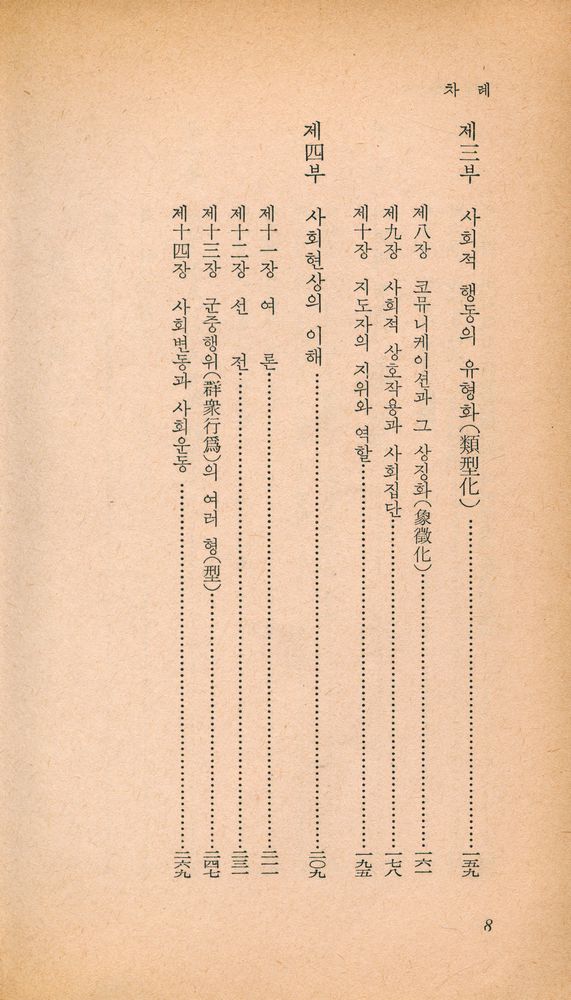 차 례
제三부 사회적 행동의 유형화(類型化)……一五九
제八장 코뮤니케이션과 그 상징화(象徵化)……一六一
제九장 사회적 상호작용과 사회집단……一七八
제十장 지도자의 지위와 역할……一九五
제四부 사회현상의 이해……二〇九
제十一장 여 론……二一一
제十二장 선 전……二三一
제十三장 군중행위(群衆行爲)의 여러 형(型)……二四七
제十四장 사회변동과 사회운동……二六九
8